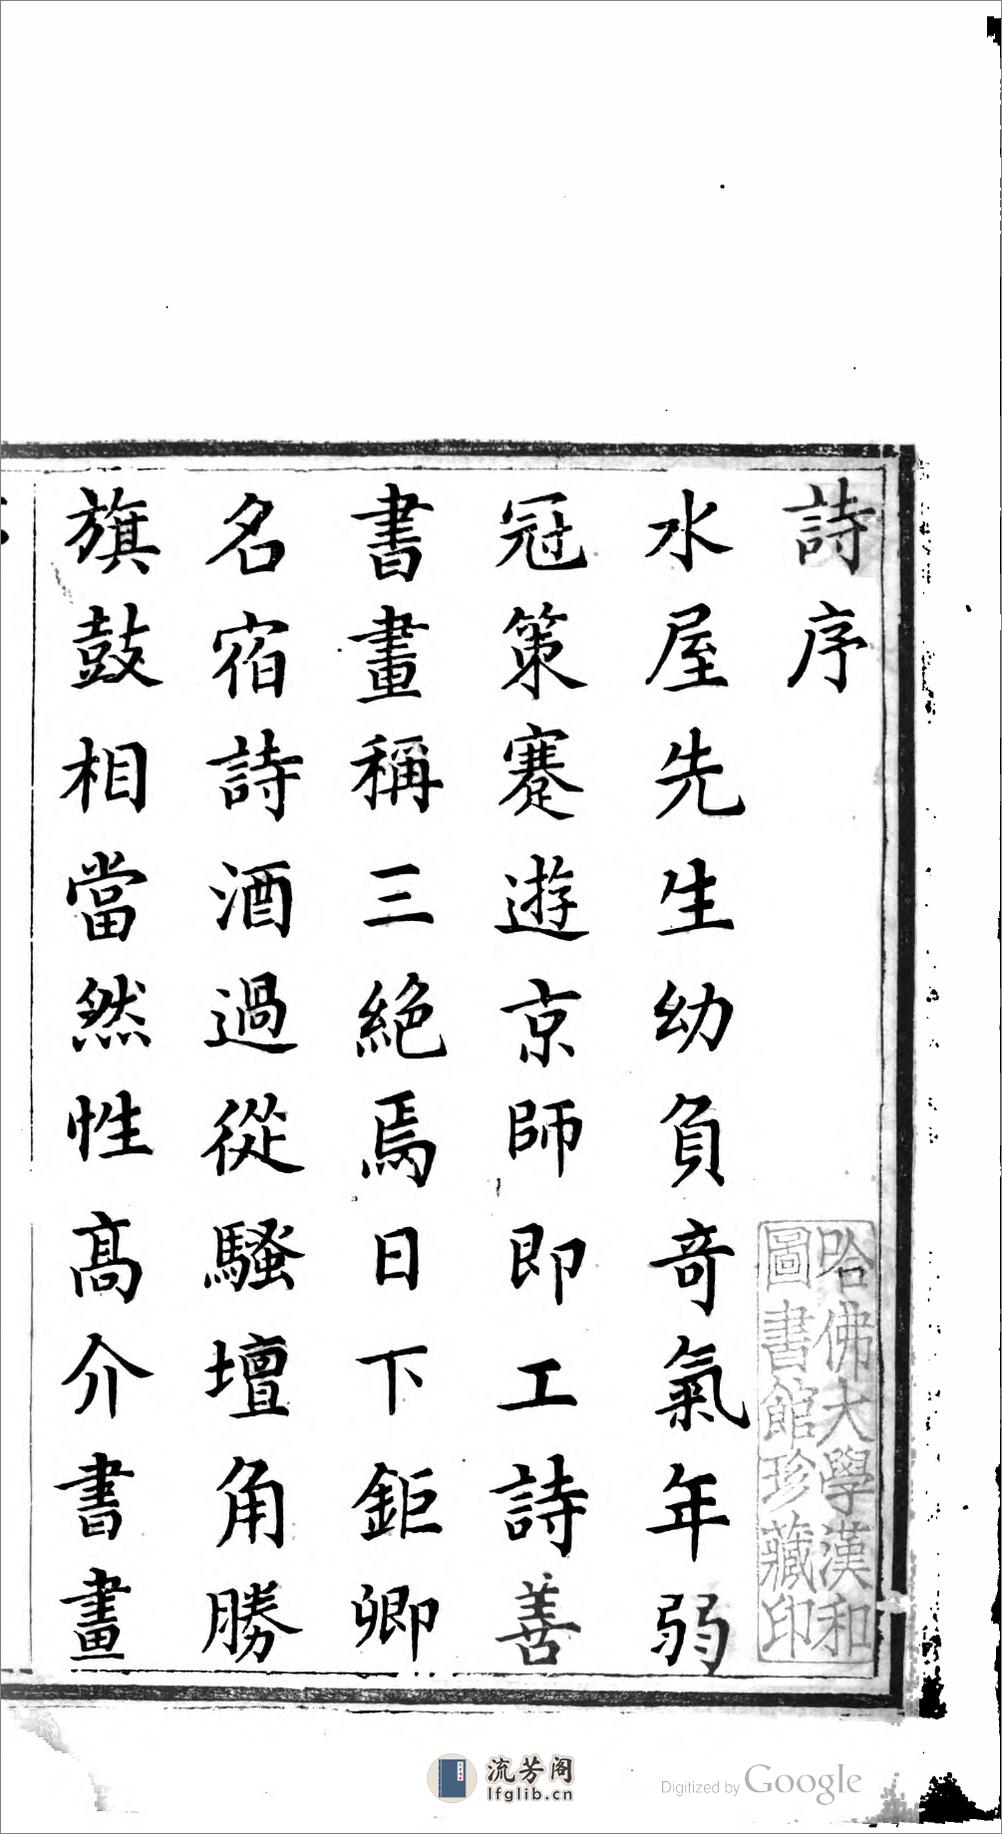 詩序
水屋先生幼負奇氣年弱
冠策蹇遊京師即工詩善
書畫稱三絕焉日下鉅卿
名宿詩酒過從騷壇角勝
旗鼓相當然性高介書畫
哈佛大學漢和
圖書館珍藏印
流芳阁
lfglib.cn
Digitized by Google